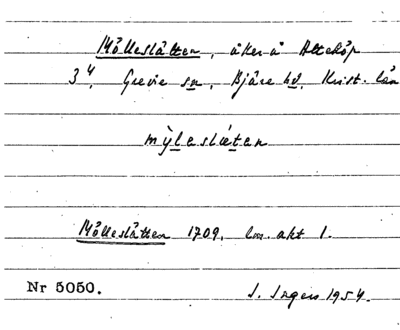 Mölleslätten, åker å Alteköp
3⁴, Grevie sn, Bjäre hd, Krist. län
mỳleslætan
Mölleslätten 1709, lm. akt 1.
Nr 5050. S. Ingers 1954.